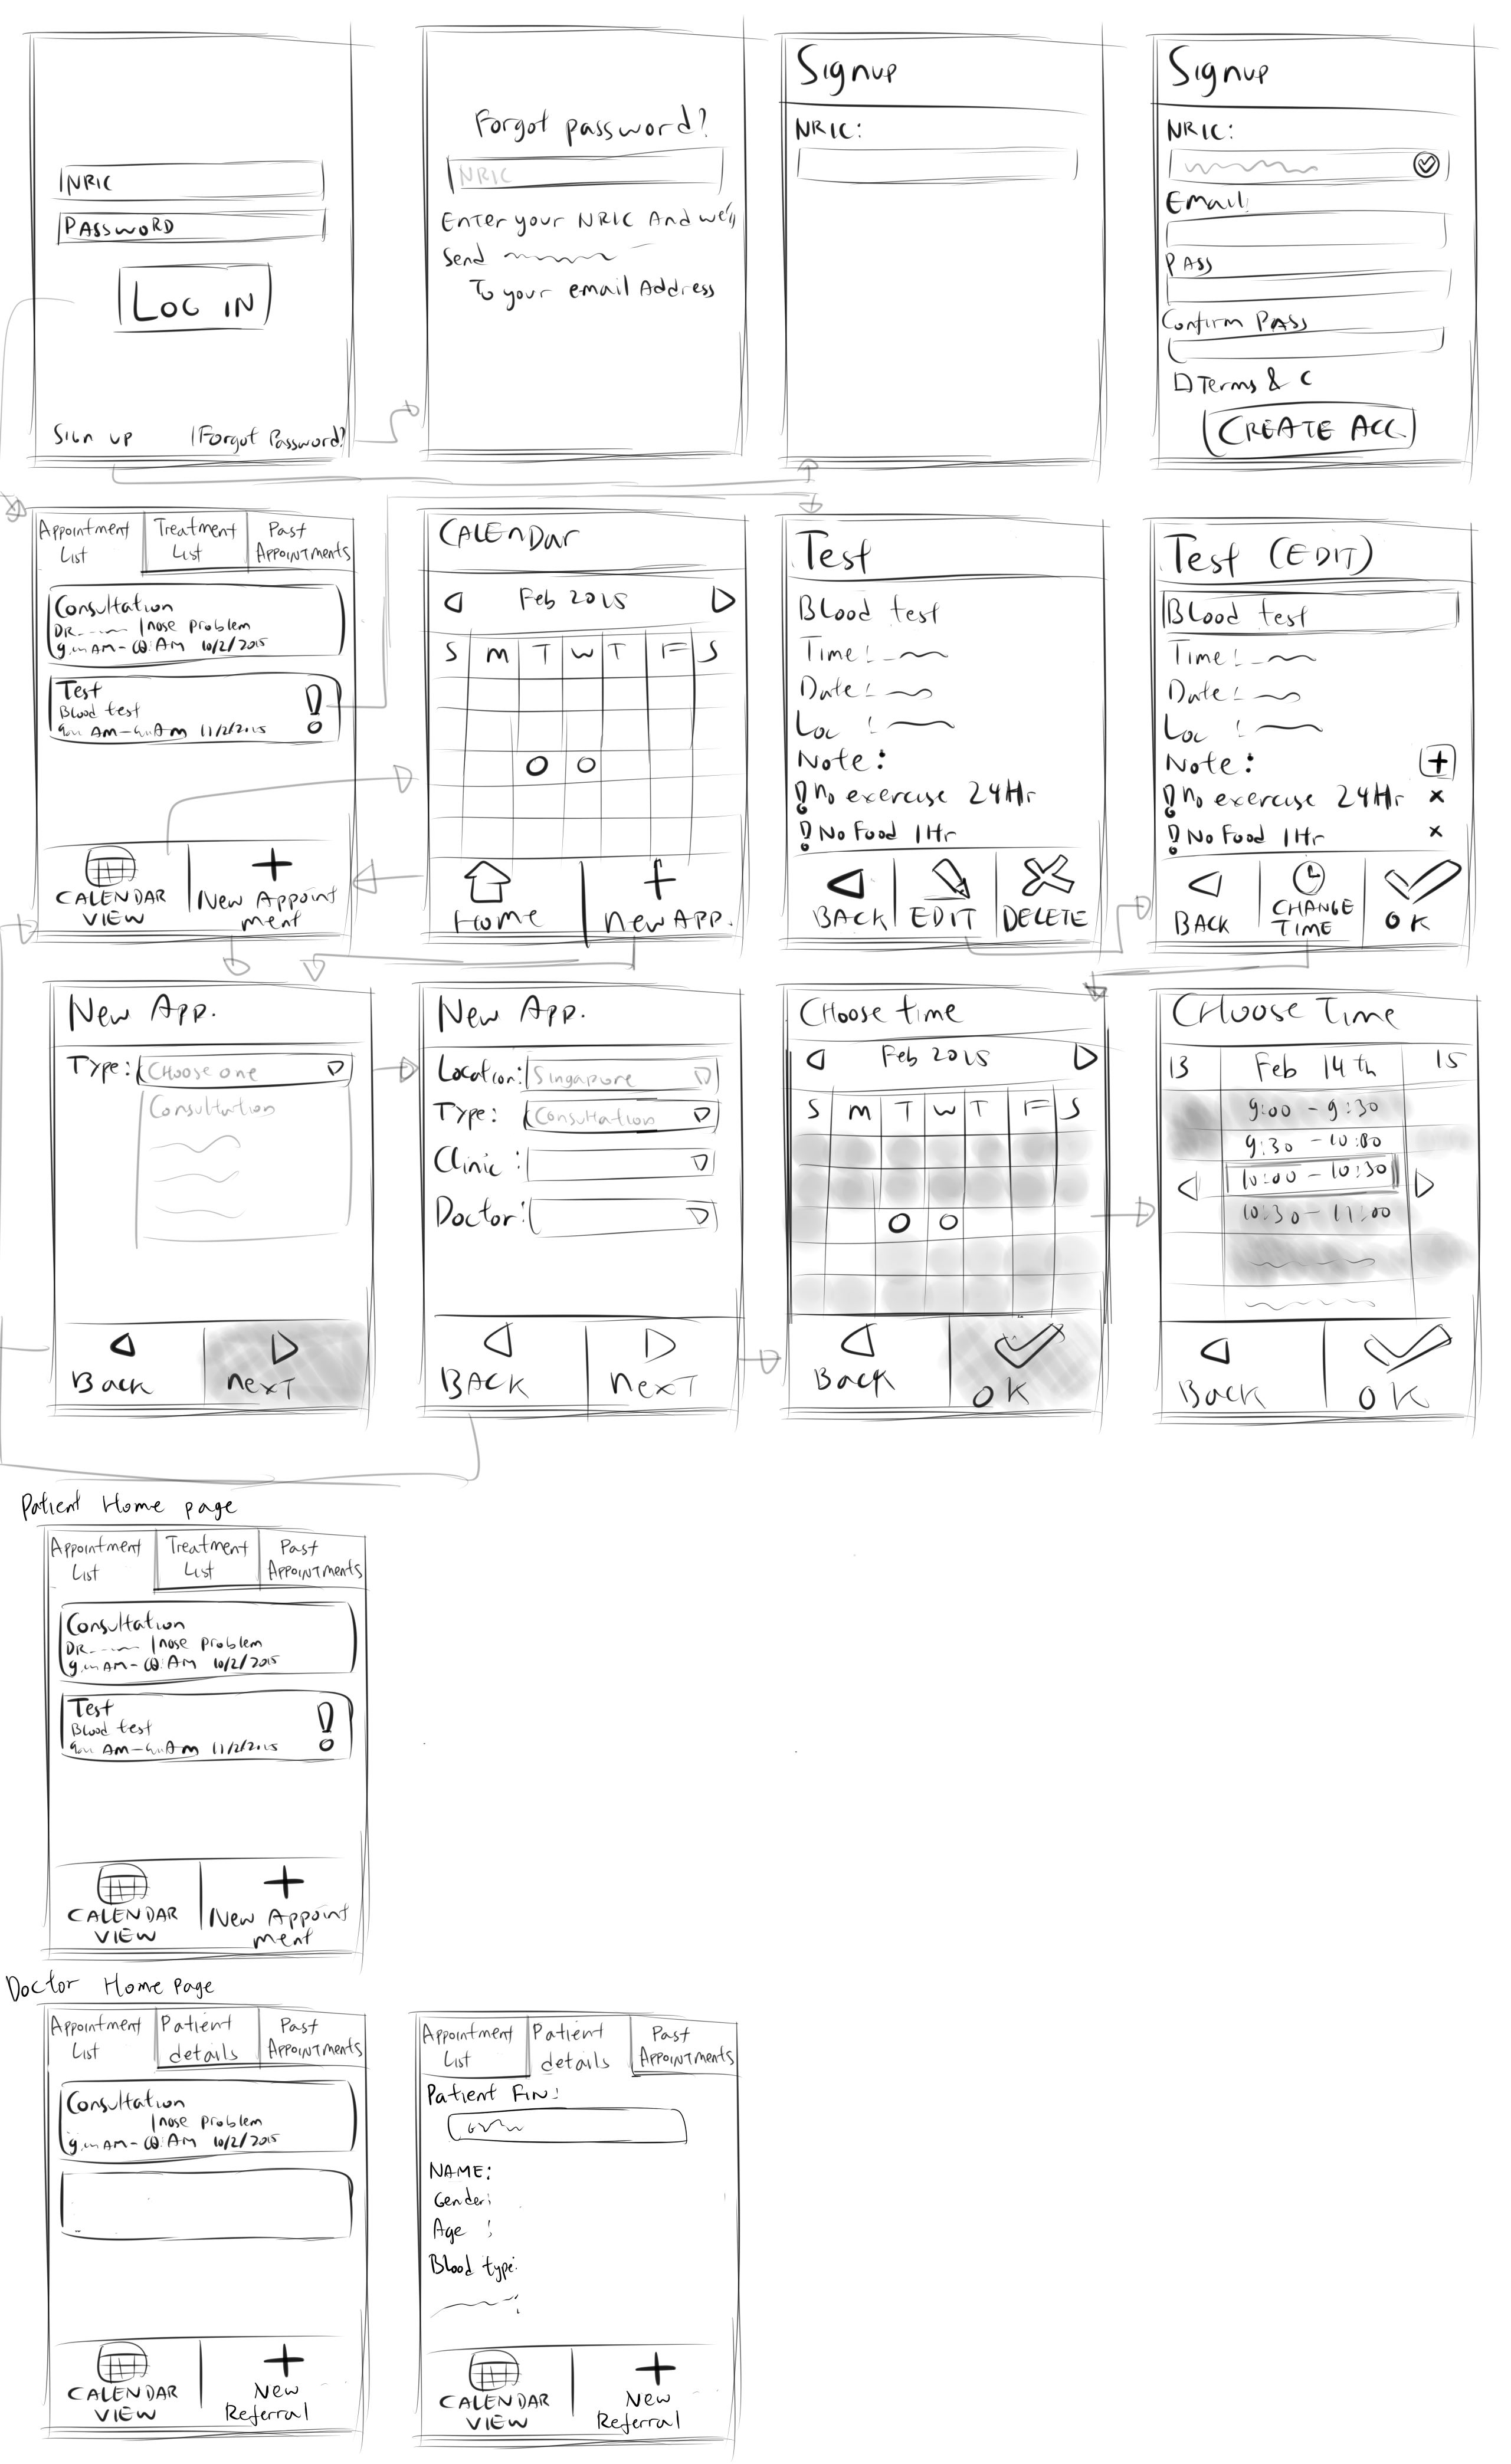 NRIC
PASSWORD
LOG IN
Sign up
Forgot Password?
Forgot password?
NRIC
Enter your NRIC And we'll
Send
To your email Address
Signup
NRIC:
Signup
NRIC:
Email:
PASS
Confirm PASS
Terms & C
CREATE ACC
Appointment
List
Treatment
List
Past
Appointments
Consultation
DR. nose problem
AM- AM 10/2/2015
Test
Blood test
AM- AM 11/2/2015
CALENDAR
VIEW
New Appoint
ment
CALENDAR
Feb 2015
S M T W T F S
Home
New APP.
Test
Blood test
Time:
Date:
Loc :
Note:
! no exercise 24Hr
! No Food 1Hr
BACK
EDIT
DELETE
Test (EDIT)
Blood test
Time:
Date:
Loc :
Note: +
! no exercise 24Hr x
! No Food 1Hr x
BACK
CHANGE
TIME
OK
New App.
Type: Choose one
Consultation
Back
next
New App.
Location: Singapore
Type: Consultation
Clinic:
Doctor:
BACK
next
Choose time
Feb 2015
S M T W T F S
Back
OK
CHOOSE TIME
13 Feb 14th 15
9:00 - 9:30
9:30 - 10:00
10:00 - 10:30
10:30 - 11:00
Back
OK
Patient Home page
Appointment
List
Treatment
List
Past
Appointments
Consultation
DR. nose problem
AM- AM 10/2/2015
Test
Blood test
AM- AM 11/2/2015
CALENDAR
VIEW
New Appoint
ment
Doctor Home Page
Appointment
List
Patient
details
Past
Appointments
Consultation
nose problem
AM- AM 10/2/2015
CALENDAR
VIEW
New
Referral
Appointment
List
Patient
details
Past
Appointments
Patient FIN:
NAME:
Gender:
Age :
Blood type:
CALENDAR
VIEW
New
Referral